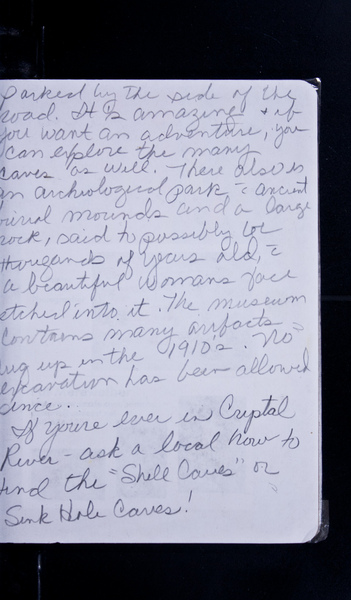 parked by the side of the
road. It is amazing & if
you want an adventure, you
can explore the many
caves as well. There also is
an archiological park - c̄ ancient
burial mounds and a large
rock, said to possibly be
thousands of years old, c̄
a beautiful womans face
etched into it. The museum
contains many artifacts
dug up in the 1910's. No
excavation has been allowed
since.
If you're ever in Crystal
River - ask a local how to
find the "Shell Caves" or
Sink Hole Caves!